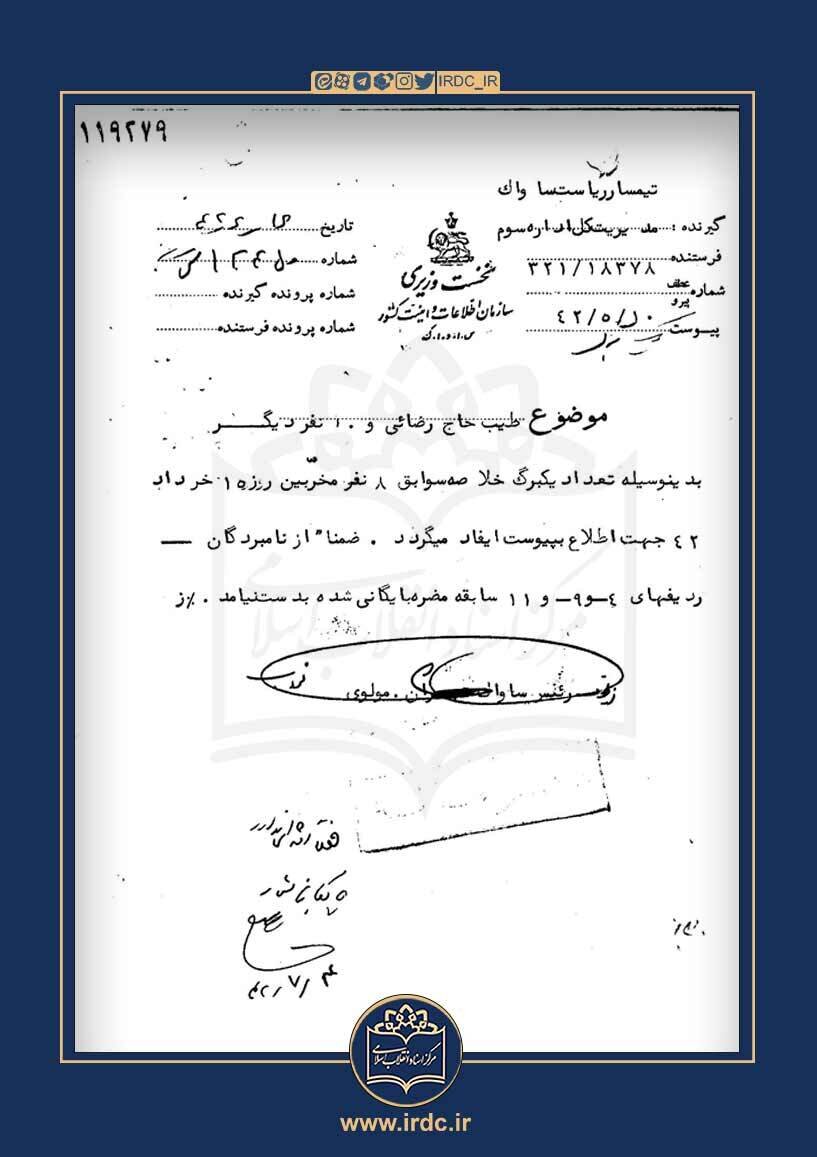 IRDC_IR
۱۱۹۲۷۹
تیمسار ریاست ساواك
گیرنده : مدیریت کل اداره سوم
فرستنده
۳۲۱/۱۸۳۷۸
شماره عطف پیرو
۴۲/۵/۱۰
پیوست
نخست وزیری
سازمان اطلاعات و امنیت کشور
س.ا.و.ا.ک
تاریخ
شماره
شماره پرونده گیرنده
شماره پرونده فرستنده
موضوع طیب حاج رضائی و ۱۰ نفر دیگر
بدینوسیله تعداد یکبرگ خلاصه سوابق ۸ نفر مخرّبین روز ۱۵ خرداد
۴۲ جهت اطلاع بپیوست ایفاد میگردد . ضمنا" از نامبردگان —
ردیفهای ۴-و۹- و ۱۱ سابقه مضره بایگانی شده بدست نیامد . %ز
رئیس ساواک تهران . مولوی
بایگانی شود
۴۲/۷/۴
مرکز اسناد انقلاب اسلامی
www.irdc.ir